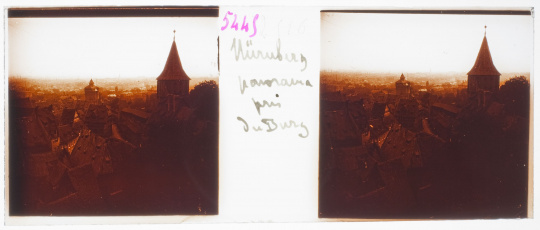 5445
Nürnberg
panorama
pris
du Burg